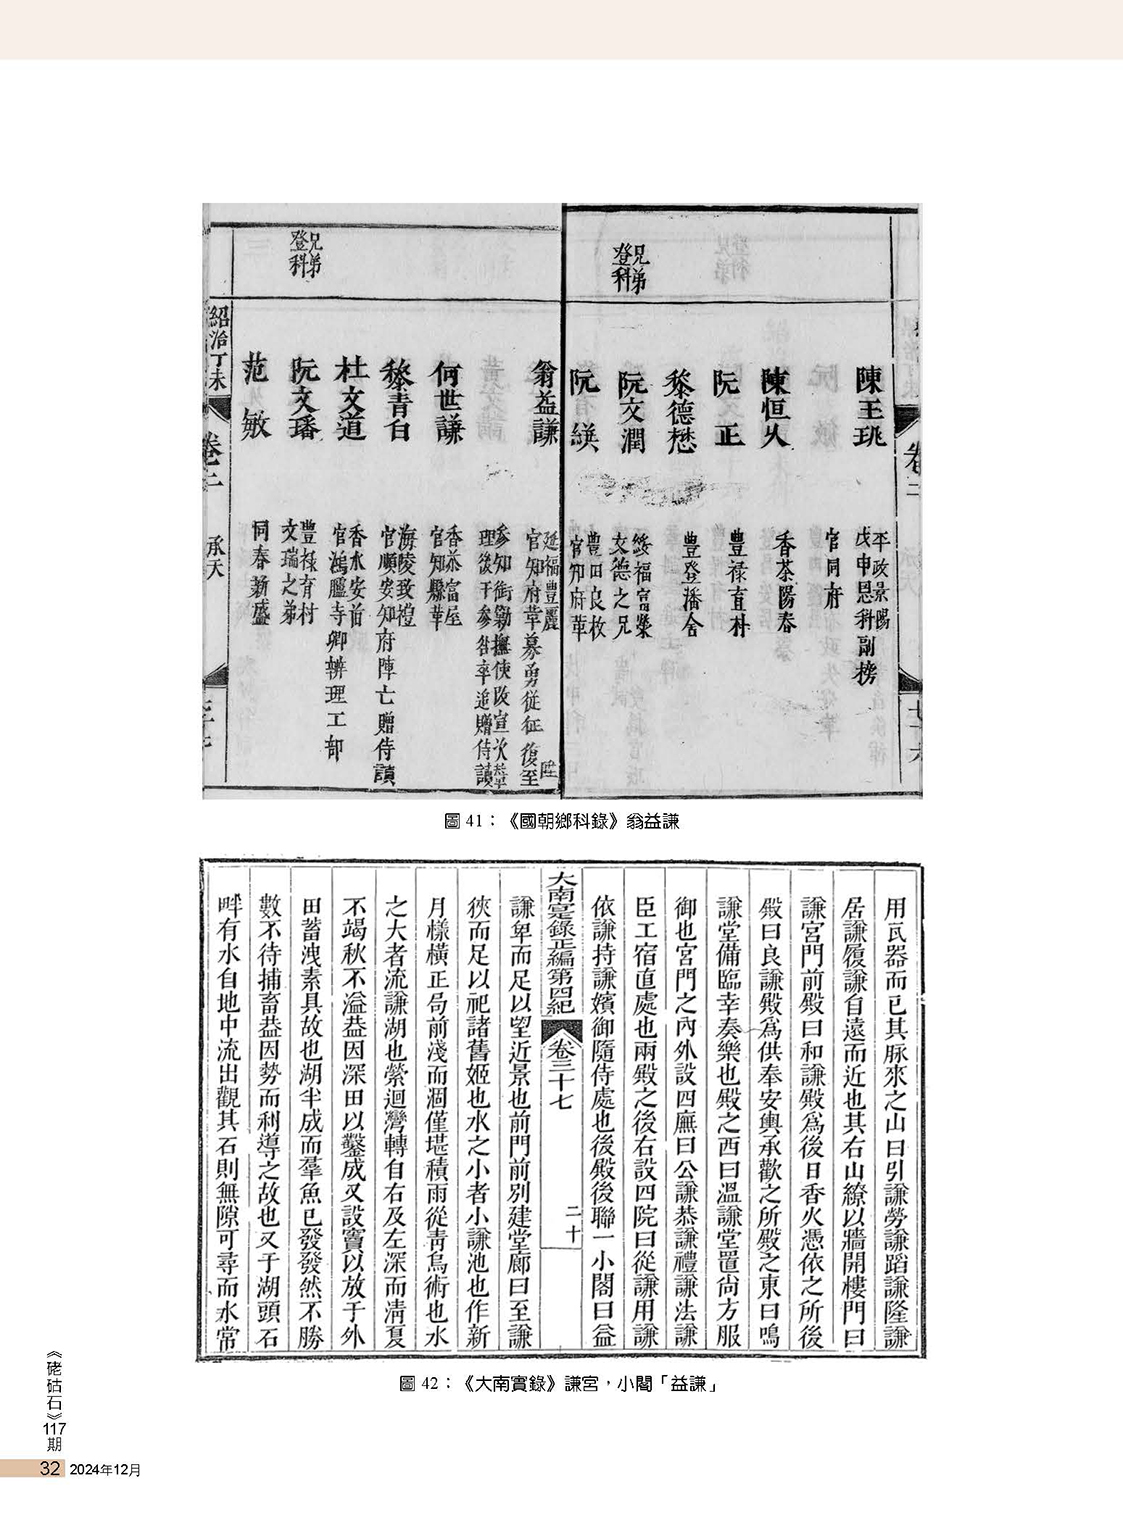 兄弟登科
陳玉珧
平政景陽
戊申恩科副榜
官同府
陳恒火
香茶陽春
阮正
豊祿直村
黎德懋
豊登潘舍
兄弟登科
阮文潤
綏福富榮
文德之兄
阮
豊田良枚
官知府革
翁益謙
延福豊麗
官知府革募勇從征復至
陞
參知衙勦撫使改宣次
理後干參咎卒追贈侍讀
何世謙
香茶富屋
官知縣革
黎青白
海陵致禮
官順安知府陣亡贈侍讀
杜文道
香水安前
官鴻臚寺卿辨理工部
兄弟登科
阮文璠
豊祿有村
文瑞之弟
范敏
同春新盛
紹治丁未
卷二
承天
圖 41：《國朝鄉科錄》翁益謙
用瓦器而已其脉來之山曰引謙勞謙蹈謙隆謙
居謙履謙自遠而近也其右山繚以牆開樓門曰
謙宮門前殿曰和謙殿爲後日香火憑依之所後
殿曰良謙殿爲供奉安輿承歡之所殿之東曰鳴
謙堂備臨幸奏樂也殿之西曰溫謙堂置尙方服
御也宮門之內外設四廡曰公謙恭謙禮謙法謙
臣工宿直處也兩殿之後右設四院曰從謙用謙
依謙持謙嬪御隨侍處也後殿後聯一小閣曰益
大南寔錄正編第四紀
卷三十七
二十
謙卑而足以望近景也前門前別建堂廊曰至謙
俠而足以祀諸舊姬也水之小者小謙池也作新
月樣橫正局前淺而涸僅堪積雨從靑烏術也水
之大者流謙湖也縈迴灣轉自右及左深而淸夏
不竭秋不溢葢因深田以鑿成又設竇以放于外
田蓄洩素具故也湖半成而羣魚已發發然不勝
數不待捕畜葢因勢而利導之故也又于湖頭石
畔有水自地中流出觀其石則無隙可尋而水常
圖 42：《大南實錄》謙宮，小閣「益謙」
《硓𥑮石》117期
32 2024年12月